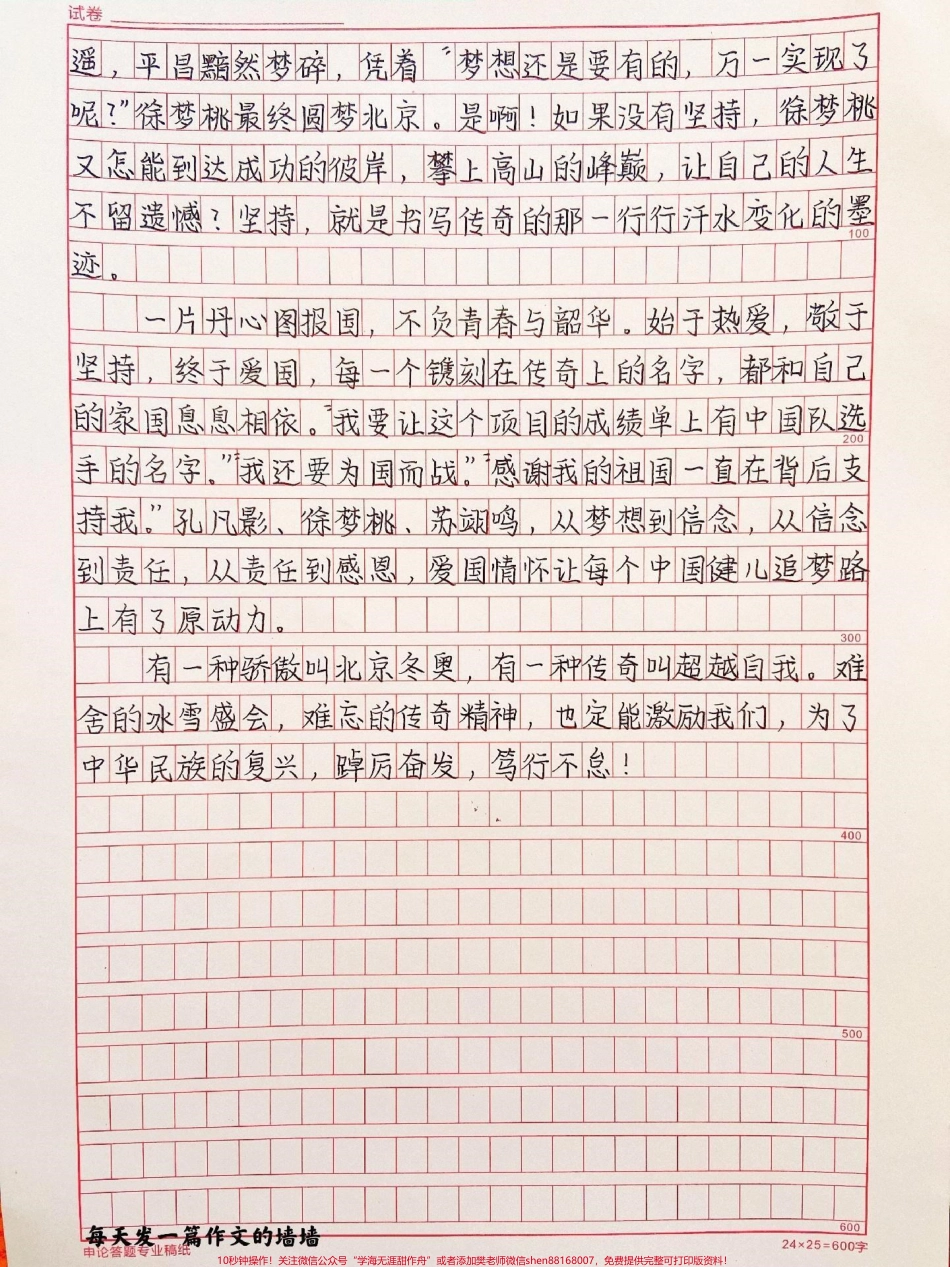 试卷
遥，平昌黯然梦碎，凭着“梦想还是要有的，万一实现了
呢？”徐梦桃最终圆梦北京。是啊！如果没有坚持，徐梦桃
又怎能到达成功的彼岸，攀上高山的峰巅，让自己的人生
不留遗憾？坚持，就是书写传奇的那一行行汗水变化的墨
100
迹。
一片丹心图报国，不负青春与韶华。始于热爱，敬于
坚持，终于爱国，每一个镌刻在传奇上的名字，都和自己
的家国息息相依。“我要让这个项目的成绩单上有中国队选
200
手的名字。”“我还要为国而战。”“感谢我的祖国一直在背后支
持我。”孔凡影、徐梦桃、苏翊鸣，从梦想到信念，从信念
到责任，从责任到感恩，爱国情怀让每个中国健儿追梦路
上有了原动力。
300
有一种骄傲叫北京冬奥，有一种传奇叫超越自我。难
舍的冰雪盛会，难忘的传奇精神，也定能激励我们，为了
中华民族的复兴，踔厉奋发，笃行不怠！
400
500
600
每天发一篇作文的墙墙
申论答题专业稿纸
24×25=600字
10秒钟操作！关注微信公众号“学海无涯甜作舟”或者添加樊老师微信shen88168007，免费提供完整可打印版资料！